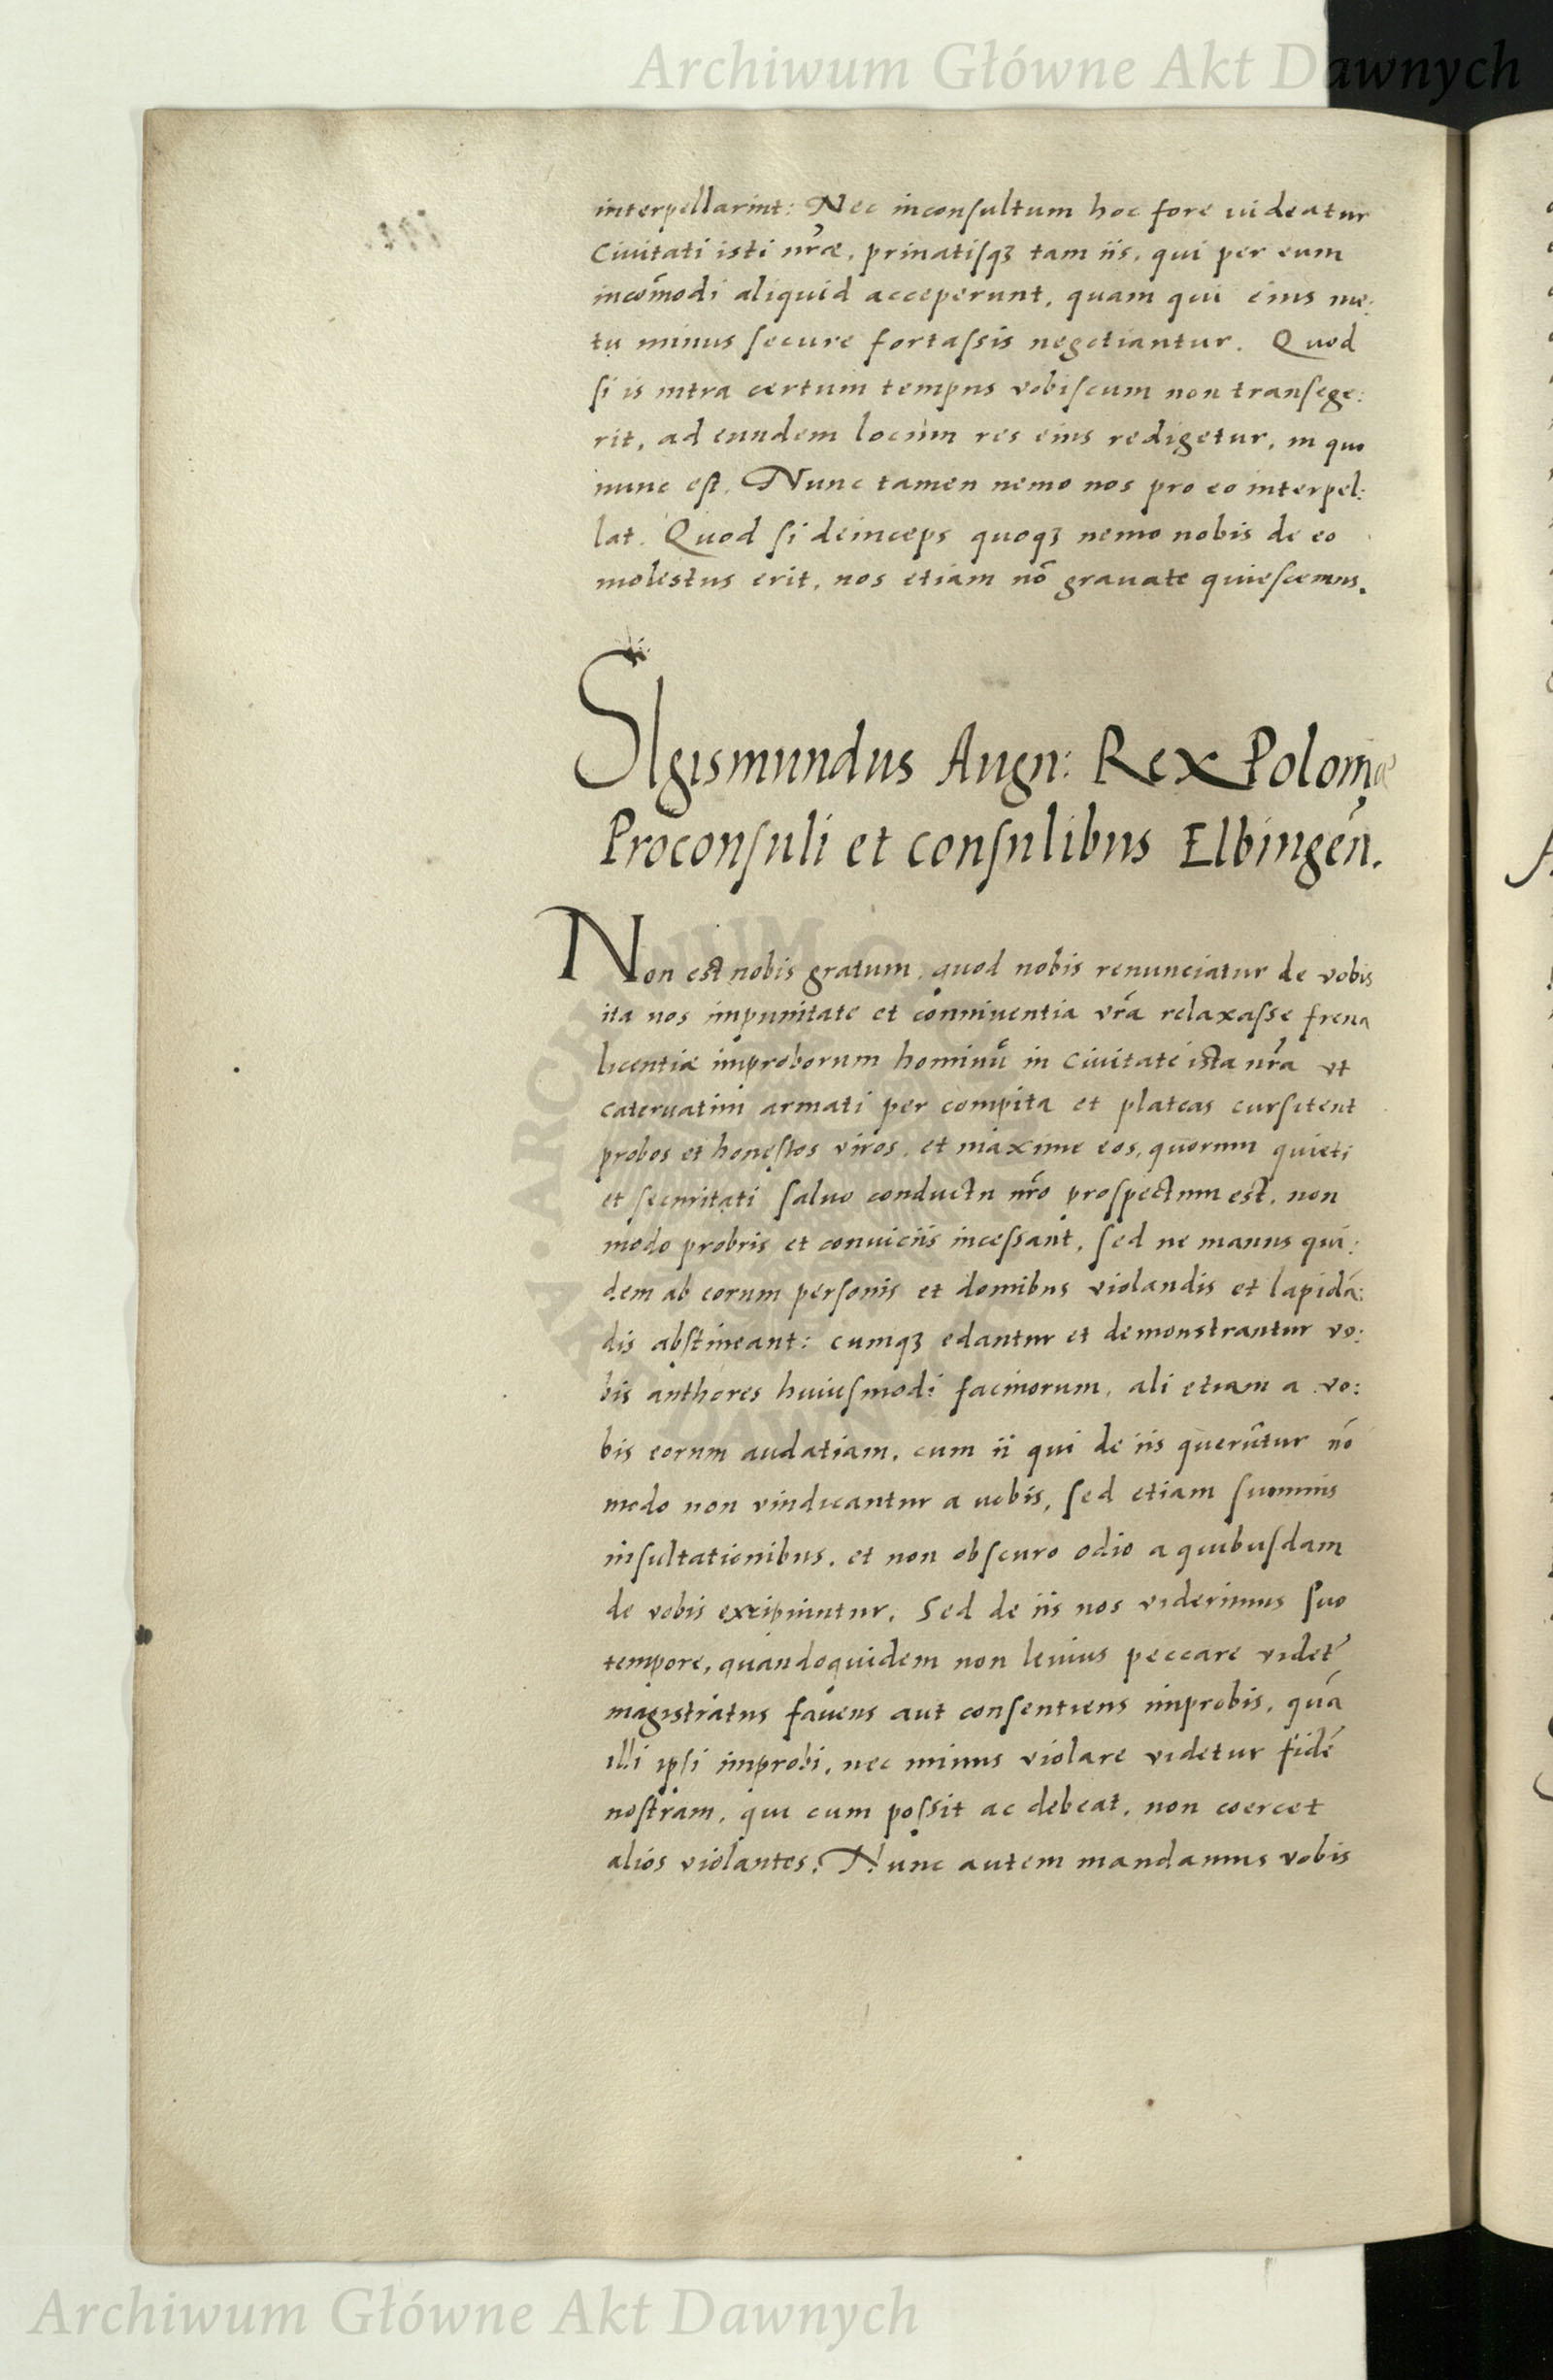 Archiwum Główne Akt Dawnych
interpellarint: Nec inconsultum hoc fore uideatur
Ciuitati isti nrae, priuatisq3 tam iis, qui per eum
incōmodi aliquid acceperunt, quam qui eius me:
tu minus secure fortassis negotiantur. Quod
si is intra certum tempus vobiscum non transege:
rit, ad eundem locum res eius redigetur, in quo
nunc est. Nunc tamen nemo nos pro eo interpel:
lat. Quod si deinceps quoq3 nemo nobis de eo
molestus erit, nos etiam nō grauate quiescemus.
SIgismundus Augu: Rex Poloniae
Proconsuli et consulibus Elbingeñ.
Non est nobis gratum, quod nobis renunciatur de vobis
ita nos impunitate et conniuentia vrā relaxasse frena
licentiae improborum hominū in Ciuitate ista nrā vt
cateruatim armati per compita et plateas cursitent
probos et honestos viros, et maxime eos, quorum quieti
et securitati saluo conductu nrō prospectum est, non
modo probris et conuiciis incessant, sed ne manus qui:
dem ab eorum personis et domibus violandis et lapidā:
dis abstineant: cumq3 edantur et demonstrantur vo:
bis authores huiusmodi facinorum, ali etiam a vo:
bis eorum audatiam, cum ii qui de iis querūtur nō
modo non vindicantur a uobis, sed etiam summis
insultationibus, et non obscuro odio a quibusdam
de vobis excipiuntur. Sed de iis nos viderimus suo
tempore, quandoquidem non leuius peccare videt
magistratus fauens aut consentiens improbis, quā
illi ipsi improbi, nec minus violare videtur fidē
nostram, qui cum possit ac debeat, non coercet
alios violantes. Nunc autem mandamus vobis
Archiwum Główne Akt Dawnych